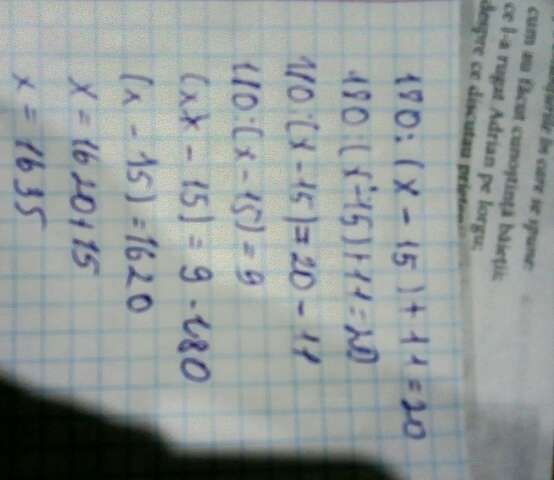 cum au făcut cunoştinţă băieţii
ce l-a rugat Adrian pe Iorgu;
despre ce discutau
180 : (x - 15) + 11 = 20
180 : (x - 15) + 11 = 20
180 : (x - 15) = 20 - 11
180 : (x - 15) = 9
(x - 15) = 9 · 180
(x - 15) = 1620
x = 1620 + 15
x = 1635